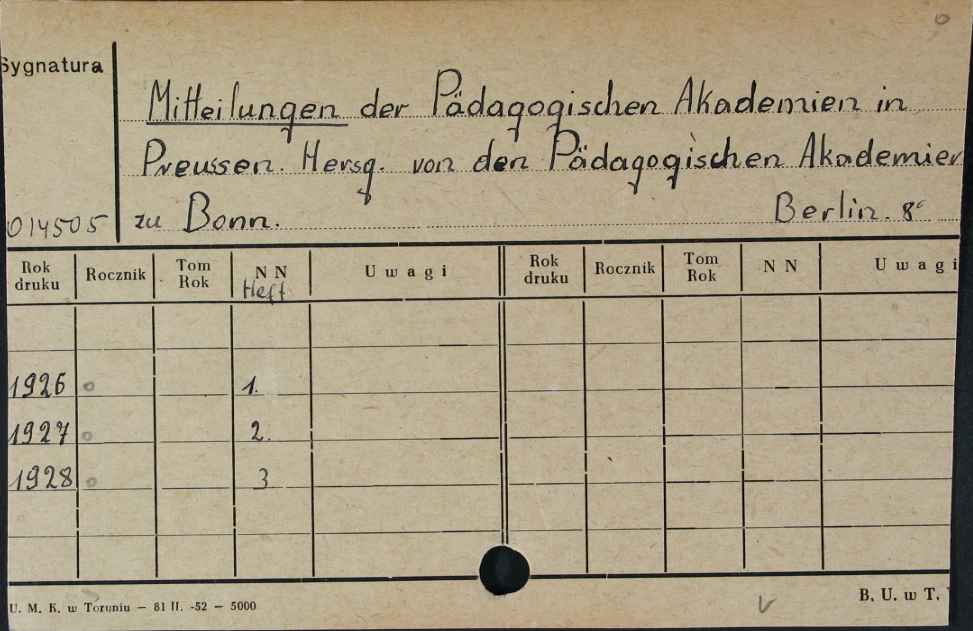 Sygnatura
Mitteilungen der Pädagogischen Akademien in
Preussen. Hersg. von den Pädagogischen Akademien
014505 zu Bonn. Berlin. 8°
Rok druku Rocznik Tom Rok N N Heft Uwagi Rok druku Rocznik Tom Rok N N Uwagi
1926 1.
1927 2.
1928 3
U. M. K. w Toruniu — 81 II. -52 — 5000 B. U. w T.